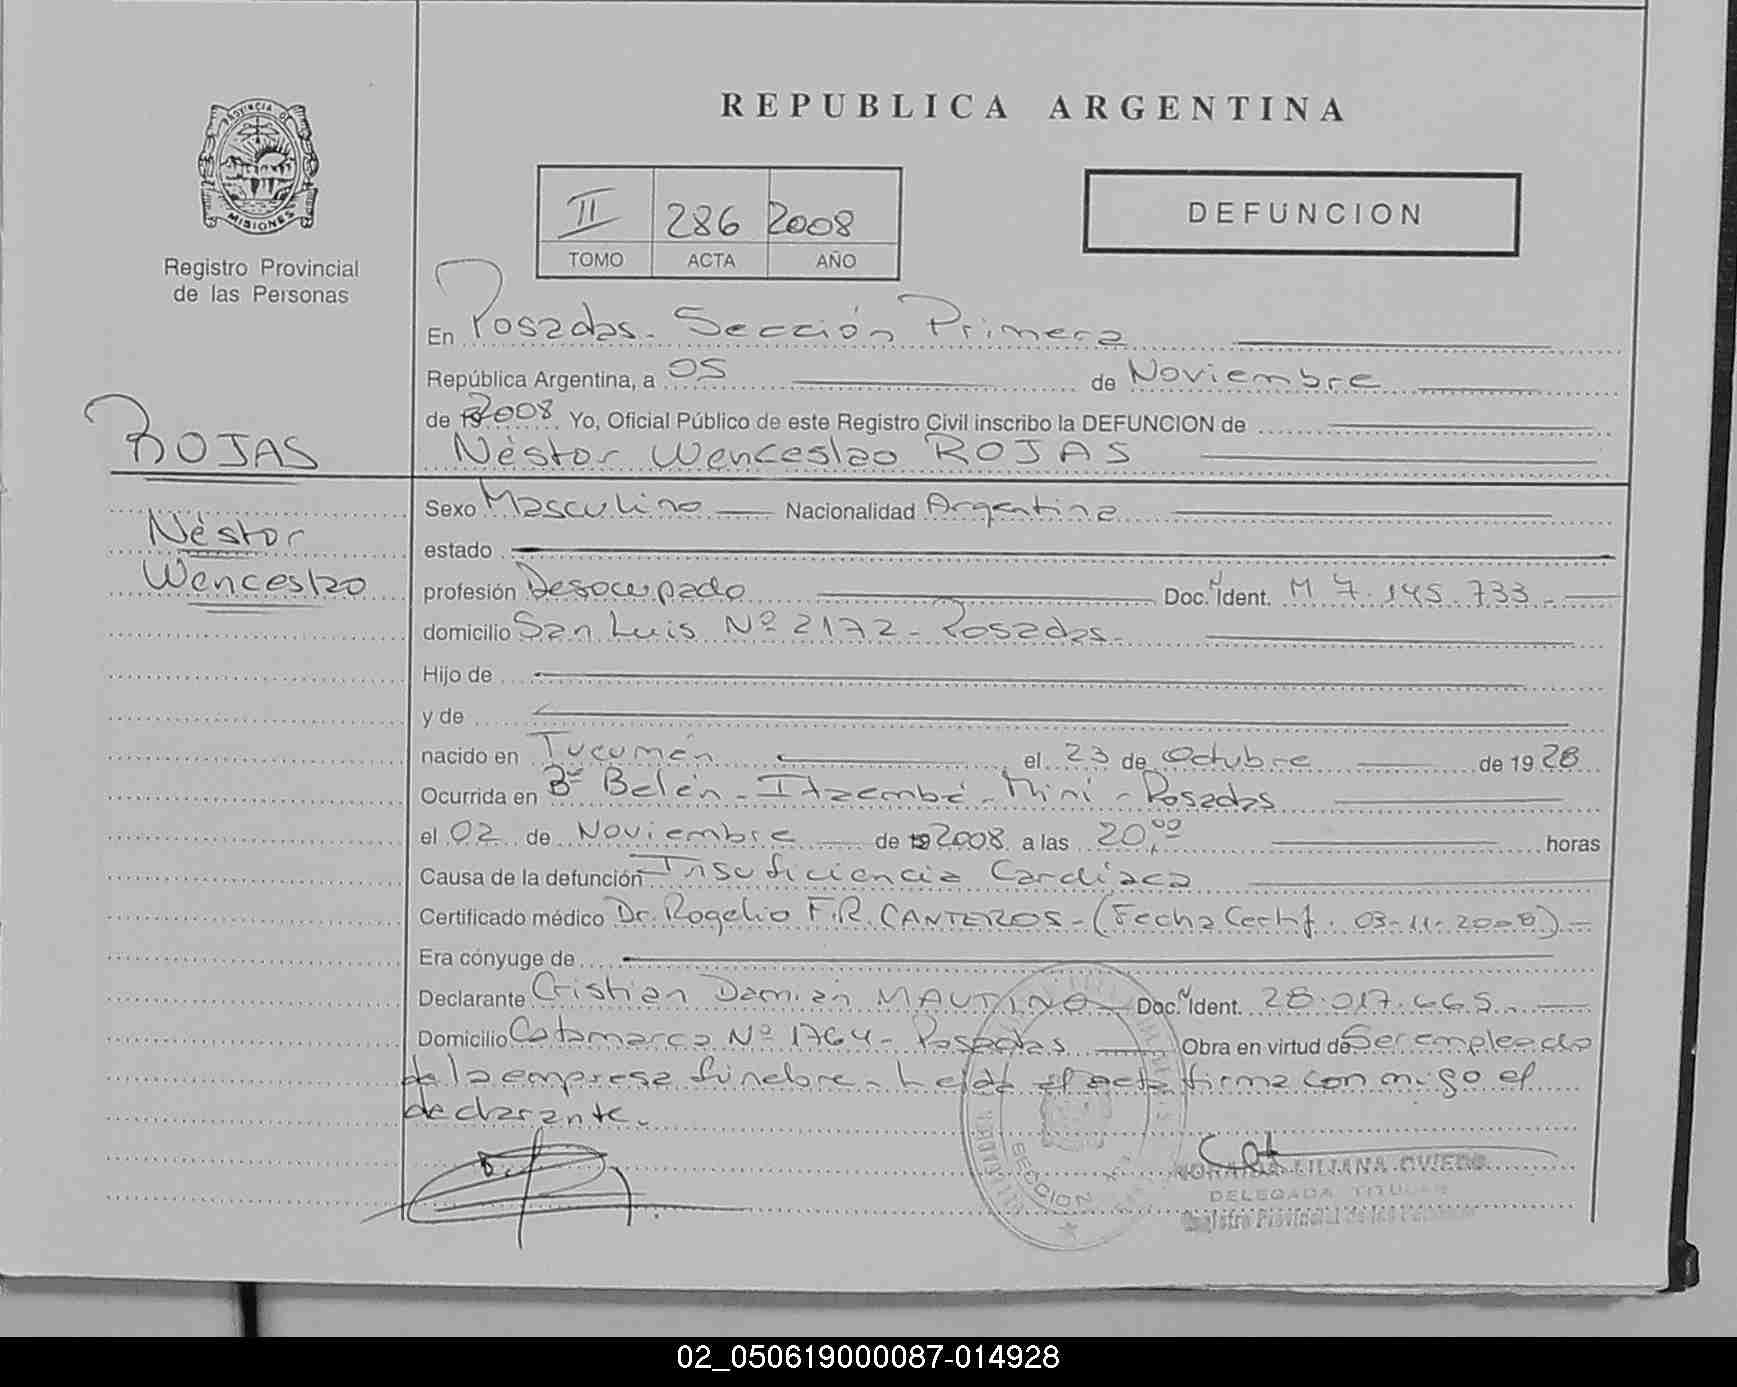 REPUBLICA ARGENTINA
PROVINCIA DE
MISIONES
Registro Provincial
de las Personas
II 286 2008
TOMO ACTA AÑO
DEFUNCION
En Posadas - Sección Primera
República Argentina, a 05 de Noviembre
de 2008 Yo, Oficial Público de este Registro Civil inscribo la DEFUNCION de
ROJAS
Néstor Wenceslao ROJAS
Néstor
Wenceslao
Sexo Masculino Nacionalidad Argentina
estado
profesión Desocupado Doc. N Ident. M 7.145.733-
domicilio San Luis Nº 2172 - Posadas -
Hijo de
y de
nacido en Tucumán el 23 de Octubre de 1928
Ocurrida en Bº Belén - Itaembé - Miní - Posadas
el 02 de Noviembre de 192008 a las 20,00 horas
Causa de la defunción Insuficiencia Cardíaca
Certificado médico Dr. Rogelio F.R. CANTEROS - (Fecha Certif. 03-11-2008) -
Era cónyuge de
Declarante Cristian Damián MAUTINO Doc. N Ident. 28.017.665.-
Domicilio Catamarca Nº 1764 - Posadas Obra en virtud de Ser empleado
de la empresa fúnebre - Leída el acta firma con migo el
declarante.
SECCION
LILIANA OVIEDO
DELEGADA TITULAR
Registro Provincial de las Personas
02_050619000087-014928